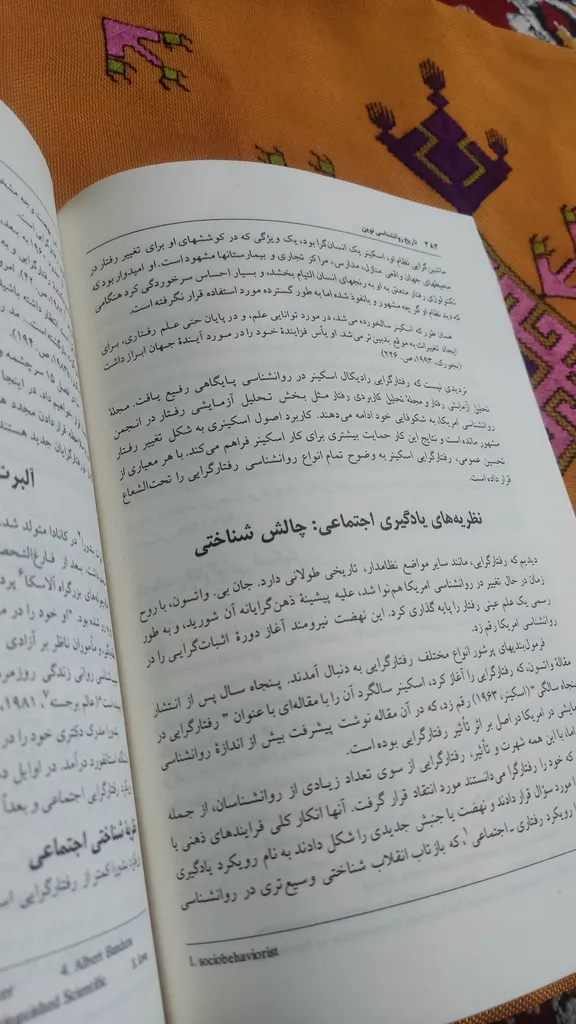 ۳۸۴ تاریخ روانشناسی نوین
ماشین گرایی نظام او، اسکینر یک انسان‌گرا بود، یک ویژگی که در کوششهای او برای تغییر رفتار در
محیطهای جهان واقعی منازل، مدارس، مراکز تجاری و بیمارستانها مشهود است. او امیدوار بود که
تکنولوژی رفتار متعلق به او به رنجهای انسان التیام بخشد، و بسیار احساس سرخوردگی کرد هنگامی
که دید نظام او گر چه مشهور و بانفوذ شده اما به طور گسترده مورد استفاده قرار نگرفته است.
همان طور که اسکینر سالخورده می‌شد، در مورد توانایی علم، و در پایان حتی علم رفتاری، برای
ایجاد تغییرات به موقع بدبین تر می‌شد. او یأس فزایندهٔ خود را در مورد آیندهٔ جهان ابراز داشت
(بجورک، ۱۹۹۳، ص. ۲۲۶)
تردیدی نیست که رفتارگرایی رادیکال اسکینر در روانشناسی پایگاهی رفیع یافت. مجلهٔ
تحلیل آزمایشی رفتار و مجلهٔ تحلیل کاربردی رفتار مثل بخش تحلیل آزمایشی رفتار در انجمن
روانشناسی امریکا، به شکوفایی خود ادامه می‌دهند. کاربرد اصول اسکینری به شکل تغییر رفتار
مشهور مانده است و نتایج این کار حمایت بیشتری برای کار اسکینر فراهم می‌کند. با هر معیاری از
تحسین عمومی، رفتارگرایی اسکینر به وضوح تمام انواع روانشناسی رفتارگرایی را تحت‌الشعاع
قرار داده است.
نظریه‌های یادگیری اجتماعی: چالش شناختی
دیدیم که رفتارگرایی، مانند سایر مواضع نظامدار، تاریخی طولانی دارد. جان بی. واتسون، با روح
زمان در حال تغییر در روانشناسی امریکا هم‌نوا شد، علیه پیشینهٔ ذهن‌گرایانه آن شورید، و به طور
رسمی یک علم عینی رفتار را پایه گذاری کرد. این نهضت نیرومند آغاز دورهٔ اثبات‌گرایی را در
روانشناسی امریکا رقم زد.
فرمول‌بندیهای پرشور انواع مختلف رفتارگرایی به دنبال آمدند. پنجاه سال پس از انتشار
مقالهٔ واتسون، که رفتارگرایی را آغاز کرد، اسکینر سالگرد آن را با مقاله‌ای با عنوان " رفتارگرایی در
پنجاه سالگی "(اسکینر، ۱۹۶۳) رقم زد، که در آن مقاله نوشت پیشرفت بیش از اندازهٔ روانشناسی
در امریکا در اصل بر اثر تأثیر رفتارگرایی بوده است.
اما، با این همه شهرت و تأثیر، رفتارگرایی از سوی تعداد زیادی از روانشناسان، از جمله
که خود را رفتارگرا می‌دانستند مورد انتقاد قرار گرفت. آنها انکار کلی فرایندهای ذهنی یا
را مورد سؤال قرار دادند و نهضت یا جنبش جدیدی را شکل دادند به نام رویکرد یادگیری
رویکرد رفتاری ـ اجتماعی ۱، که بازتاب انقلاب شناختی وسیع تری در روانشناسی
1. sociobehaviorist
آلبرت
در کانادا متولد شد.
بعد از فارغ‌التحصیل
بزرگراه آلاسکا ۶
بود. "او خود را در
مأموران ناظر بر آزادی
روانی زندگی روزمره
است" (عالم برجسته ۷، ۱۹۸۱،
مدرک دکتری خود را در
استانفورد درآمد. در اوایل
رفتارگرایی اجتماعی و بعداً
شناختی اجتماعی
4. Albert Bandura
Distinguished Scientific